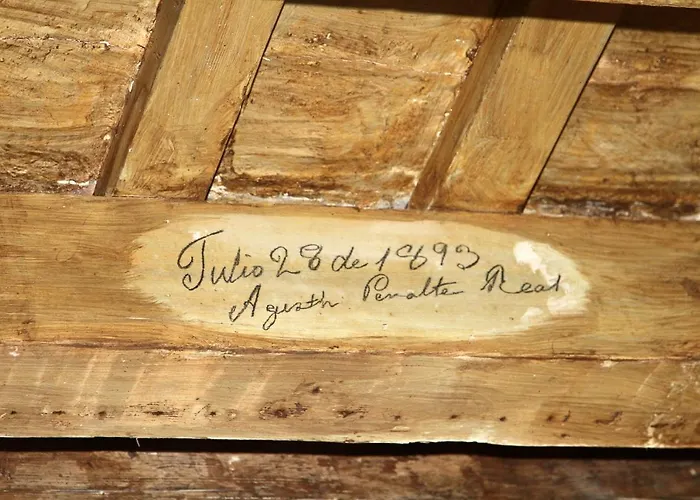 Julio 28 de 1893
Agustin Penalte Real